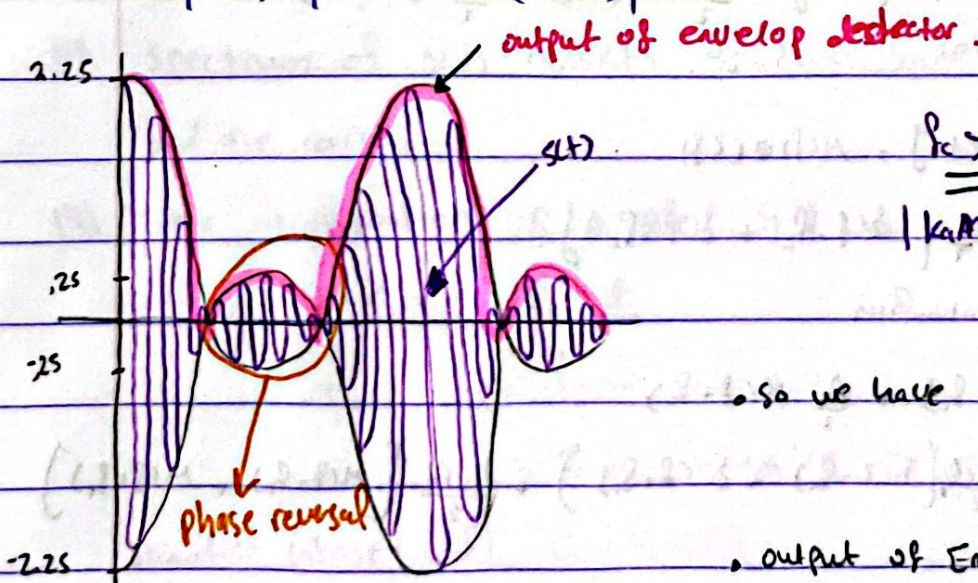 output of envelop destector.
2.25
s(t)
fc >
| kaA
.25
-.25
• so we have
phase reversal
-2.25
• output of En